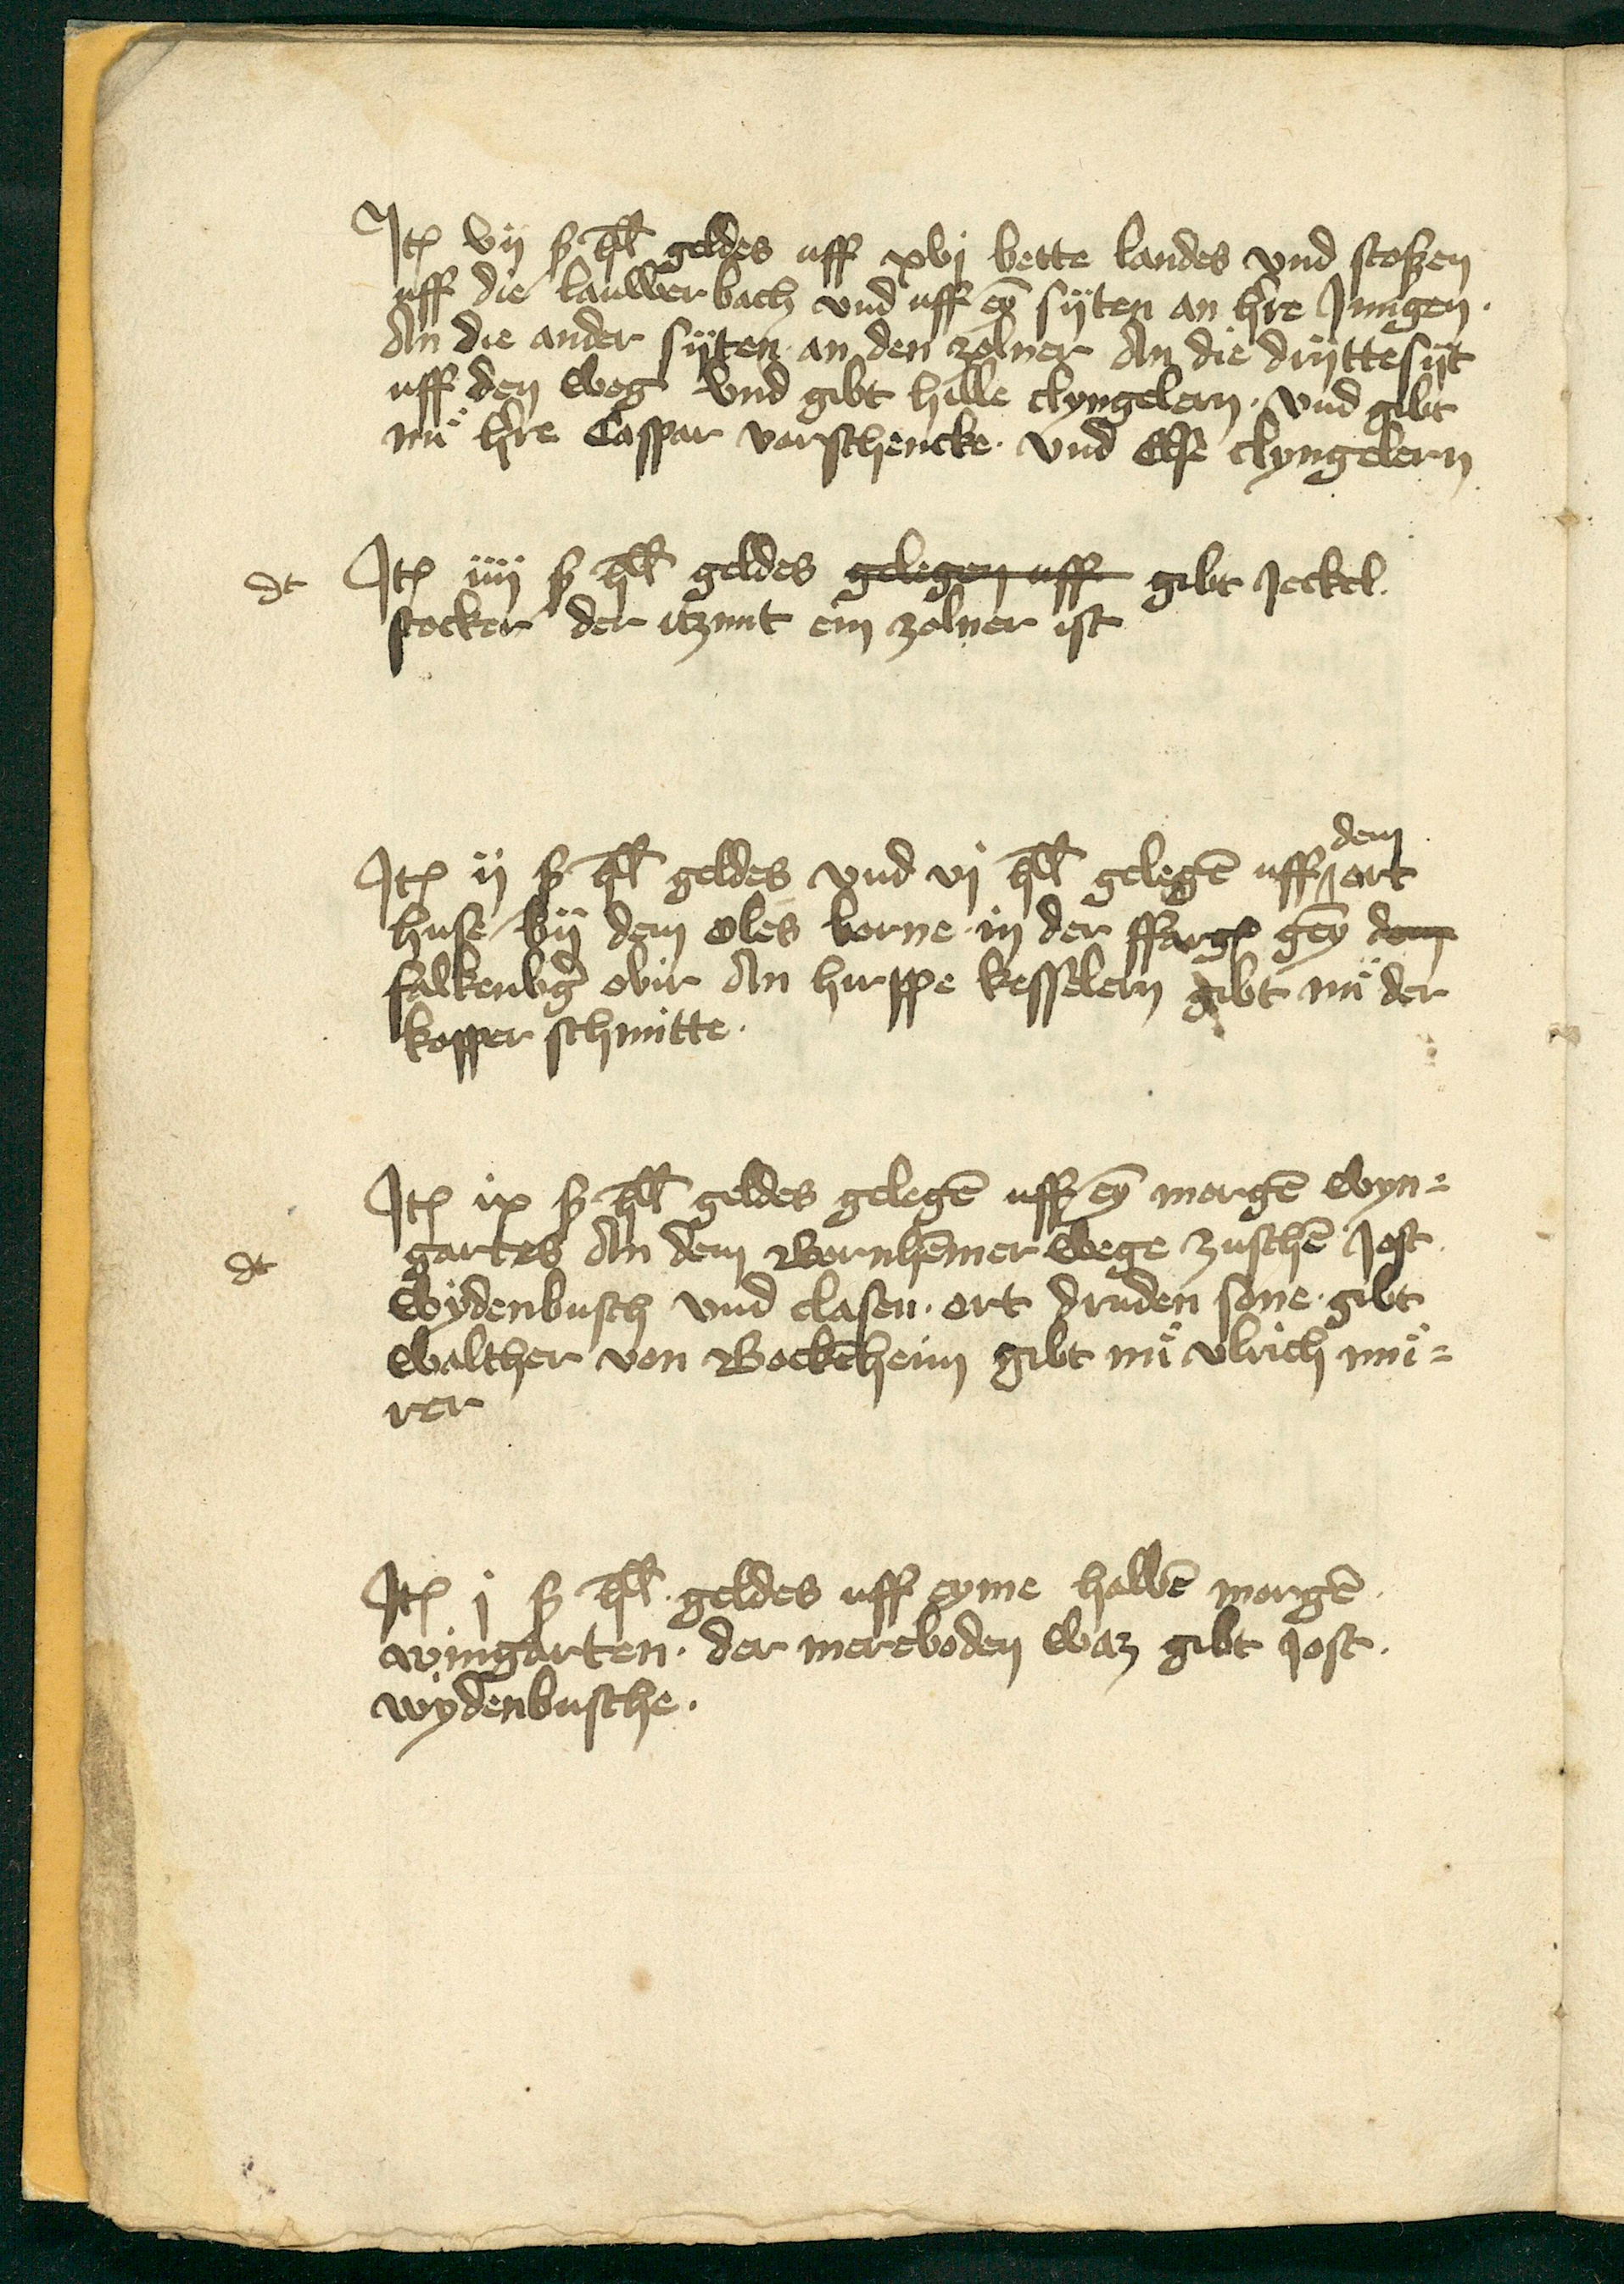 Itē vij ß hll̄ geldes uff xvj bette landes vnd stoßen
uff die lauwerbach vnd uff eỹ sijten an hře Jungen.
An die ander sijten an den zolner An die drijtte sijt
uff den weg vnd gibt hille clyngelern. vnd gibt
nuͦ hře Caspar vorschencke. vnd Else clyngelern
dt Itē iiij ß hll̄ geldes gelegen uff gibt Jeckel.
stocker der itzunt ein zolner ist
dem
Itē ij ß hll̄ geldes vnd vj hll̄ gelegē uff ort
huse bij dem oles borne in der ffargē geȳ dem
falkenbg̃ obir An hirppe kesselern gibt nuͦ der
kopper schmitte.
Itē ix ß hll̄ geldes gelegē uff eȳ morgē wyn=
dt gartes An dem Bornhēmer wege zuschē Jost.
wydenbusch vnd clasen. ort druden sone. gibt
walther von Bockēheim gibt nuͦ vlrich muͦ=
rer
Itē j ß hll̄. geldes uff eyme halbē morgē.
wingarten. der mereboden waz gibt Jost.
wydenbusche.